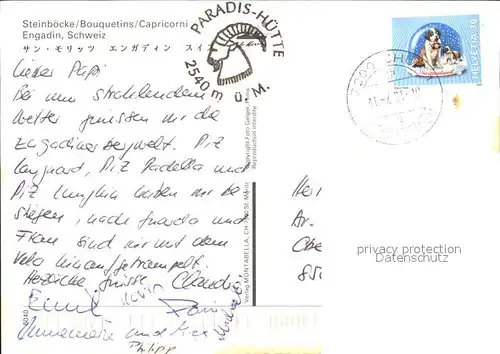 Steinböcke/Bouquetins/Capricorni
Engadin, Schweiz
サン・モリッツ エンガディン スイス
PARADIS-HÜTTE
2540 m ü. M.
HELVETIA 70
Lieber Papi
Bei strahlendem
Wetter geniessen wir die
Engadiner Bergwelt. Piz
Languard, Piz Padella und
Piz Lunghin haben wir be
stiegen, nach Guarda und
Ftan sind wir mit dem
Velo hinaufgetrampelt.
Herzliche Grüsse Claudia
Kevin
Annemarie und
Philipp
Foto Geiger, Flims
Reproduction interdite
Verlag MONTABELLA, CH-7500 St. Moritz
6040
privacy protection
Datenschutz